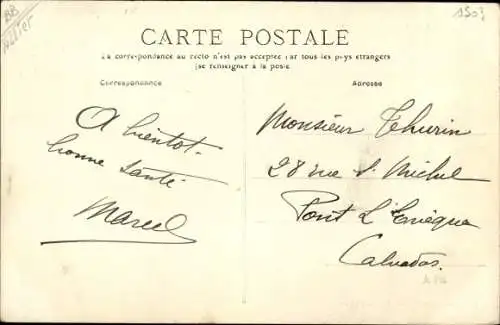 BB
1503
CARTE POSTALE
La correspondance au recto n'est pas acceptée par tous les pays étrangers
(se renseigner à la poste
Correspondance
Adresse
A bientôt.
bonne santé
Marcel
Monsieur Thurin
28 rue St Michel
Pont L'Evêque
Calvados.